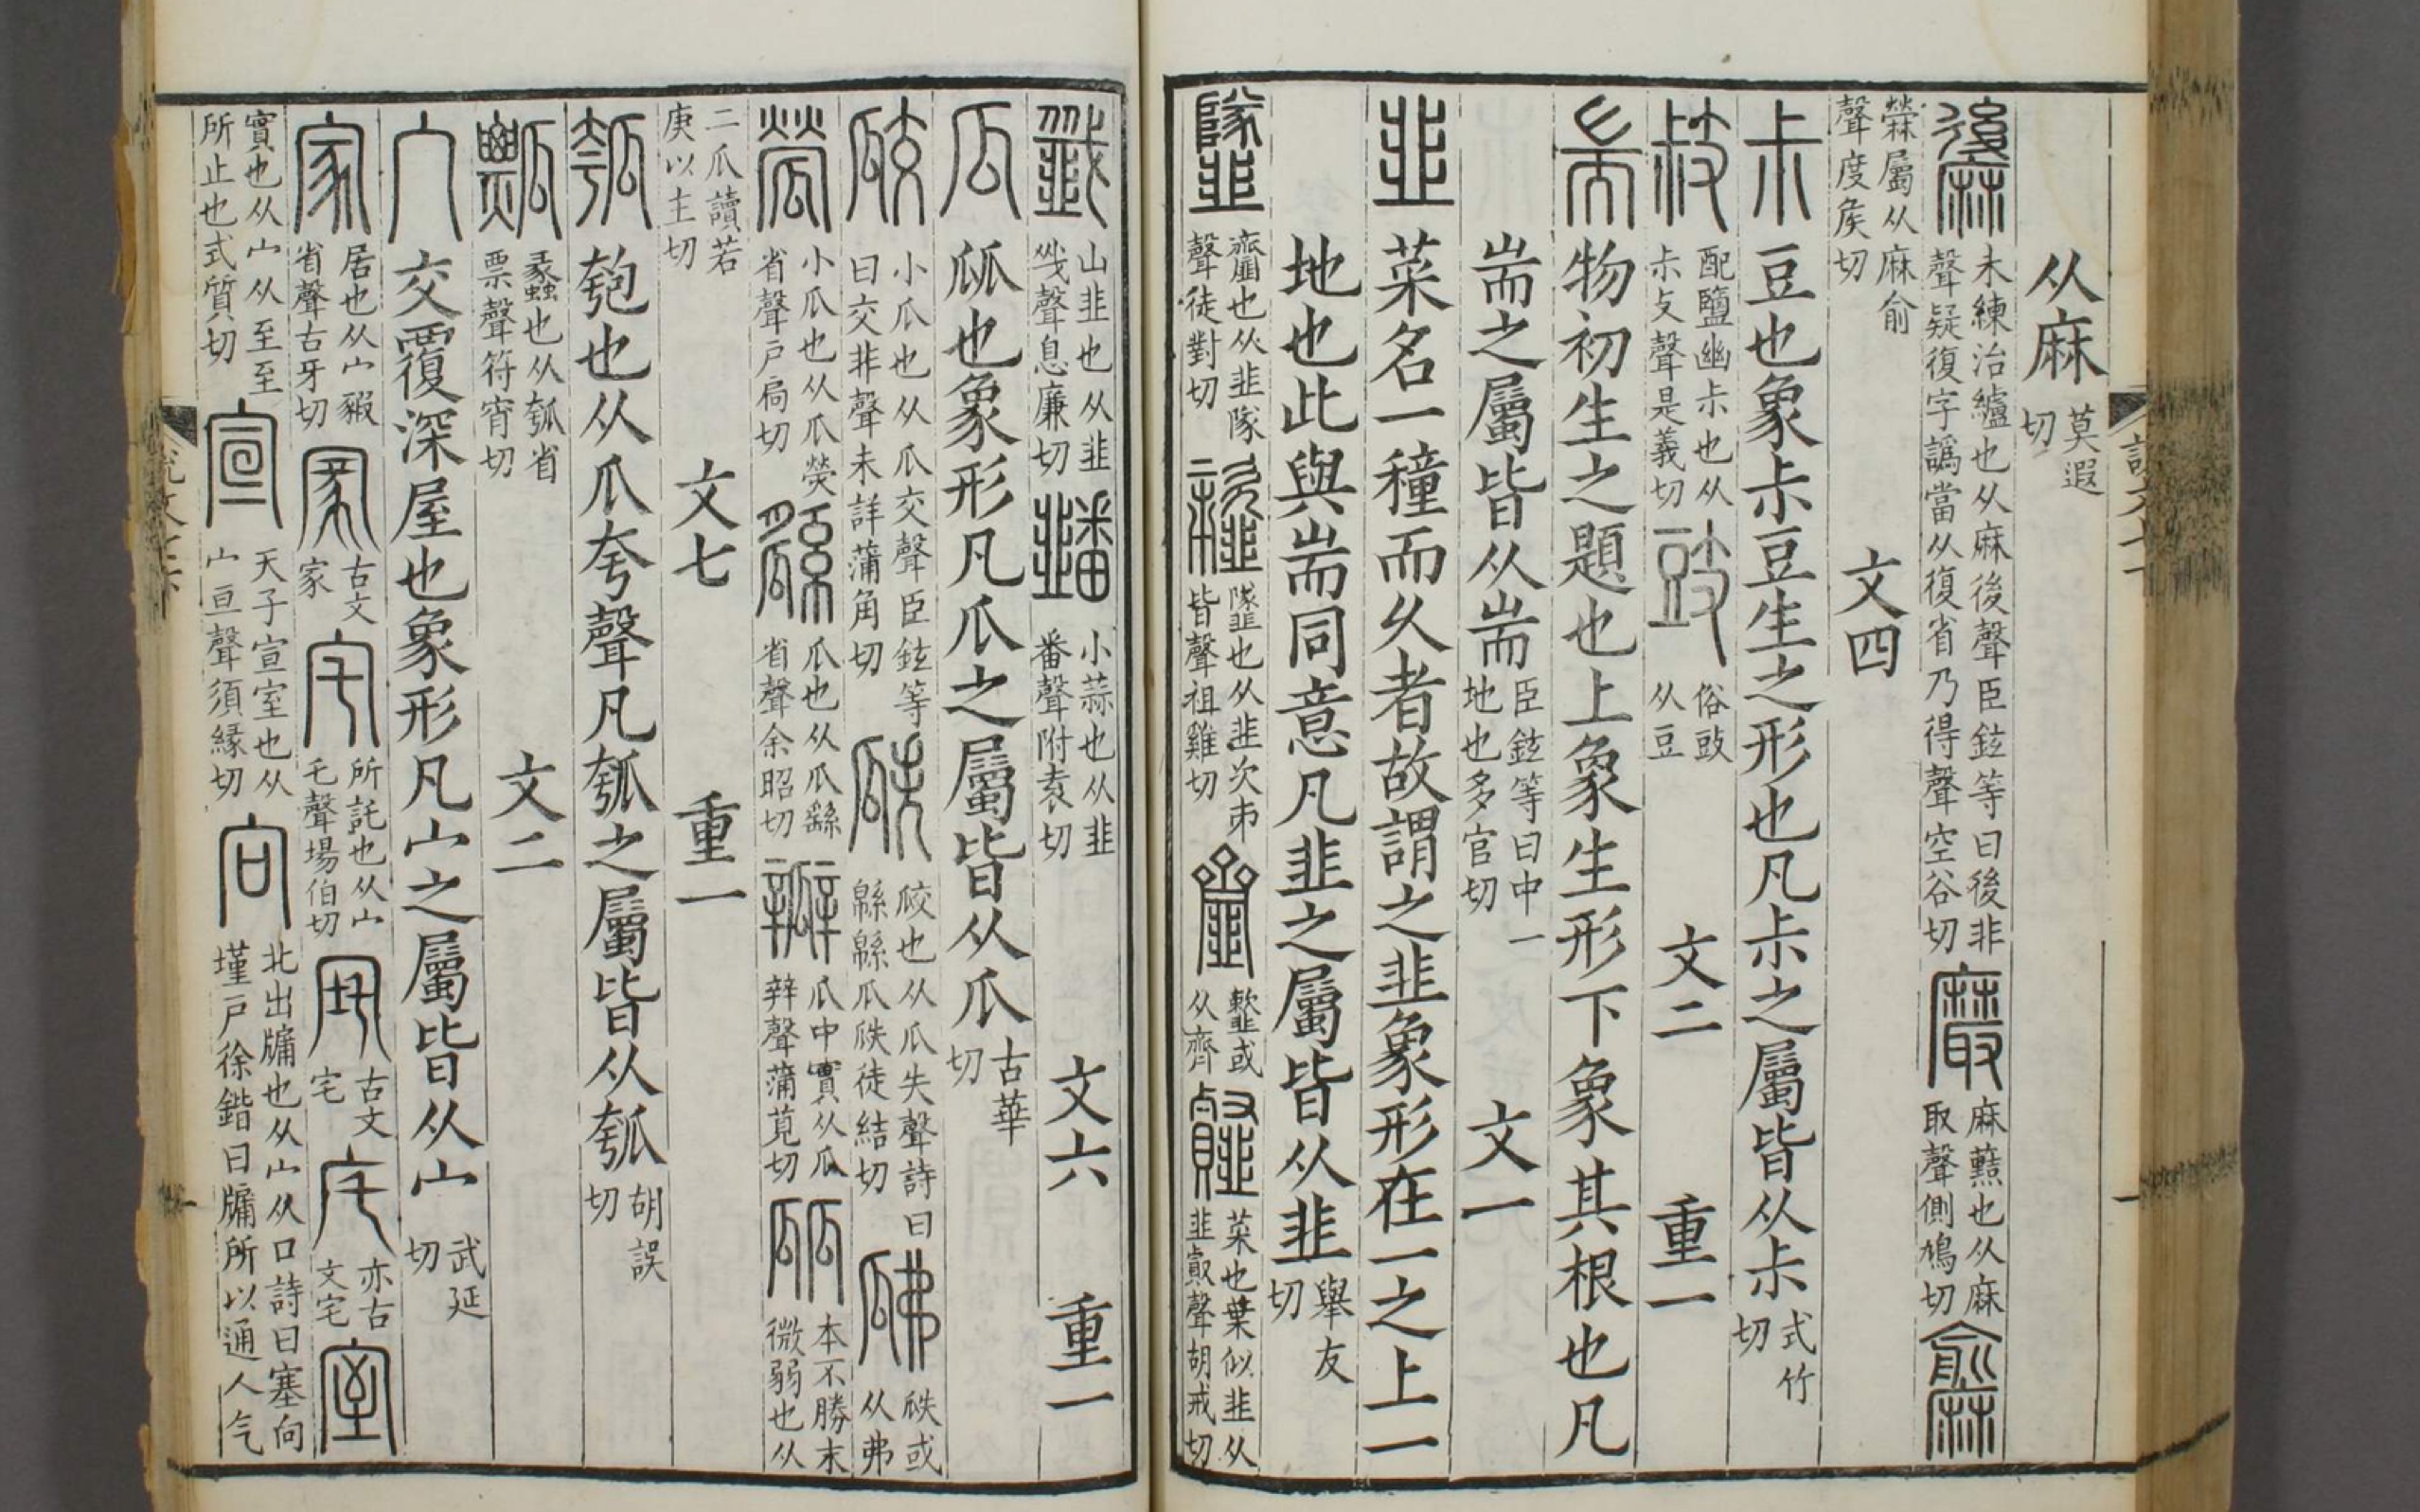 从麻莫遐切
𪎕未練治纑也从麻後聲臣鉉等曰後非聲疑復字譌當从復省乃得聲空谷切 黀麻藍也从麻取聲側鳩切 𪎗
檾屬从麻俞聲度矦切
文四
尗豆也象尗豆生之形也凡尗之屬皆从尗式竹切
䜴配鹽幽尗也从尗攴聲是義切 豉俗䜴从豆 文二 重一
耑物初生之題也上象生形下象其根也凡
耑之屬皆从耑臣鉉等曰中一地也多官切 文一
韭菜名一種而乆者故謂之韭象形在一之上一
地也此與耑同意凡韭之屬皆从韭舉友切
䪤䪢也从韭隊聲徒對切 䪢䪤也从韭次𠂔皆聲祖雞切 齏䪢或从齊 䪥菜也葉似韭从韭㕡聲胡戒切
韱山韭也从韭㦰聲息廉切 䪛小蒜也从韭番聲附袁切 文六 重一
瓜㼌也象形凡瓜之屬皆从瓜古華切
㼎小瓜也从瓜交聲臣鉉等曰交非聲未詳蒲角切 瓞㼎也从瓜失聲詩曰緜緜瓜瓞徒結切 𤬏瓞或从弗
㼆小瓜也从瓜熒省聲戸扃切 𤬖瓜也从瓜繇省聲余昭切 瓣瓜中實从瓜辡聲蒲莧切 㼌本不勝末微弱也从
二瓜讀若庾以主切 文七 重一
瓠匏也从瓜夸聲凡瓠之屬皆从瓠胡誤切
瓢蠡也从瓠省票聲符宵切 文二
宀交覆深屋也象形凡宀之屬皆从宀武延切
家居也从宀豭省聲古牙切 𠖔古文家 宅所託也从宀乇聲場伯切 㡯古文宅 㡯亦古文宅 室
實也从宀从至至所止也式質切 宣天子宣室也从宀亘聲須緣切 向北出牖也从宀从口詩曰塞向墐戸徐鍇曰牖所以通人气